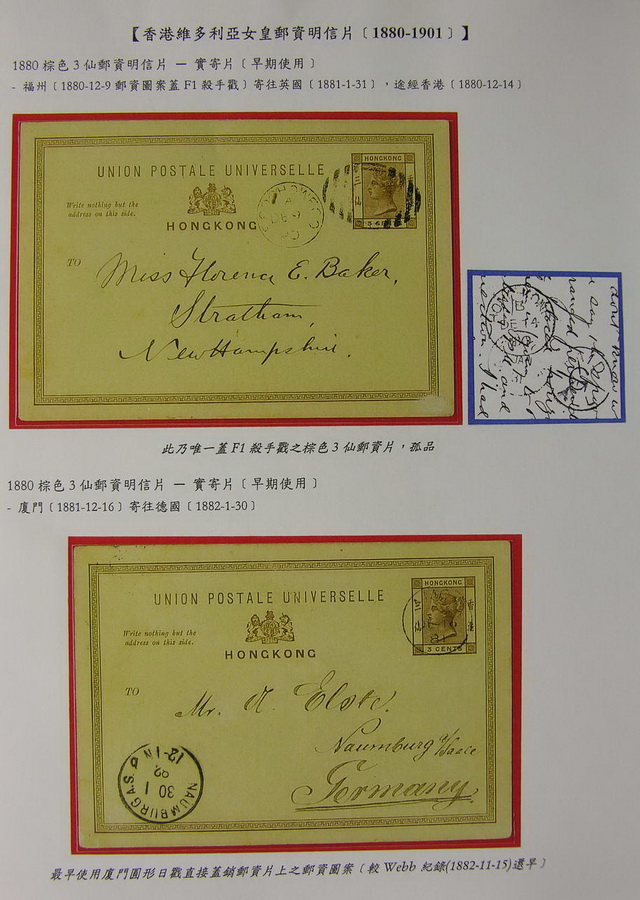 【香港維多利亞女皇郵資明信片〔1880-1901〕】
1880 棕色 3 仙郵資明信片 — 實寄片〔早期使用〕
- 福州〔1880-12-9 郵資圖案蓋 F1 殺手戳〕寄往英國〔1881-1-31〕，途經香港〔1880-12-14〕
UNION POSTALE UNIVERSELLE
HONGKONG
Write nothing but the
address on this side.
HONGKONG
TO
Miss Florence E. Baker,
Stratham,
New Hampshire.
此乃唯一蓋 F1 殺手戳之棕色 3 仙郵資片，孤品
1880 棕色 3 仙郵資明信片 — 實寄片〔早期使用〕
- 廈門〔1881-12-16〕寄往德國〔1882-1-30〕
UNION POSTALE UNIVERSELLE
HONGKONG
3 CENTS
香港
Write nothing but the
address on this side.
HONGKONG
TO
Mr. A.
Naumburg a/Saale
Germany
NAUMBURG A.S.
30 1
82
12-1N
最早使用廈門圓形日戳直接蓋銷郵資片上之郵資圖案〔較 Webb 紀錄(1882-11-15)還早〕